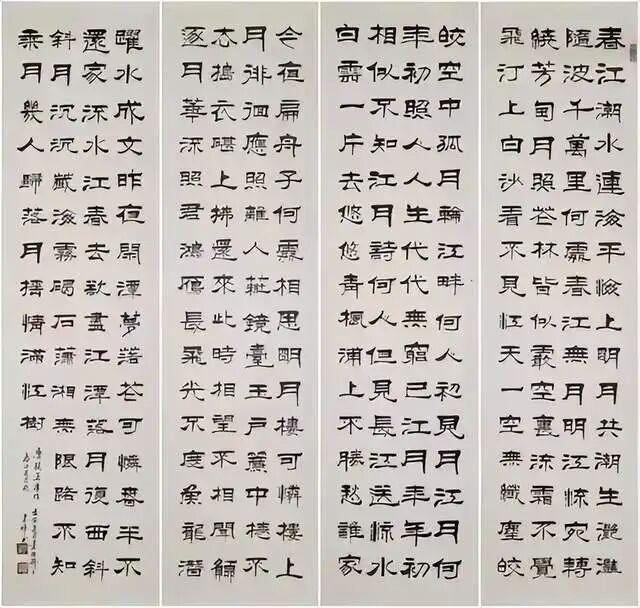 春江潮水連海平海上明月共潮生灧灧
隨波千萬里何處春江無月明江流宛轉
繞芳甸月照花林皆似霰空裏流霜不覺
飛汀上白沙看不見江天一空無纖塵皎
皎空中孤月輪江畔何人初見月江月何
年初照人人生代代無窮已江月年年初
相似不知江月待何人但見長江送流水
白雲一片去悠悠青楓浦上不勝愁誰家
今夜扁舟子何處相思明月樓可憐樓上
月徘徊應照離人妝鏡臺玉戶簾中捲不
去搗衣砧上拂還來此時相望不相聞願
逐月華流照君鴻雁長飛光不度魚龍潛
躍水成文昨夜閒潭夢落花可憐春半不
還家流水江春去欲盡江潭落月復西斜
斜月沉沉藏海霧碣石瀟湘無限路不知
乘月幾人歸落月搖情滿江樹